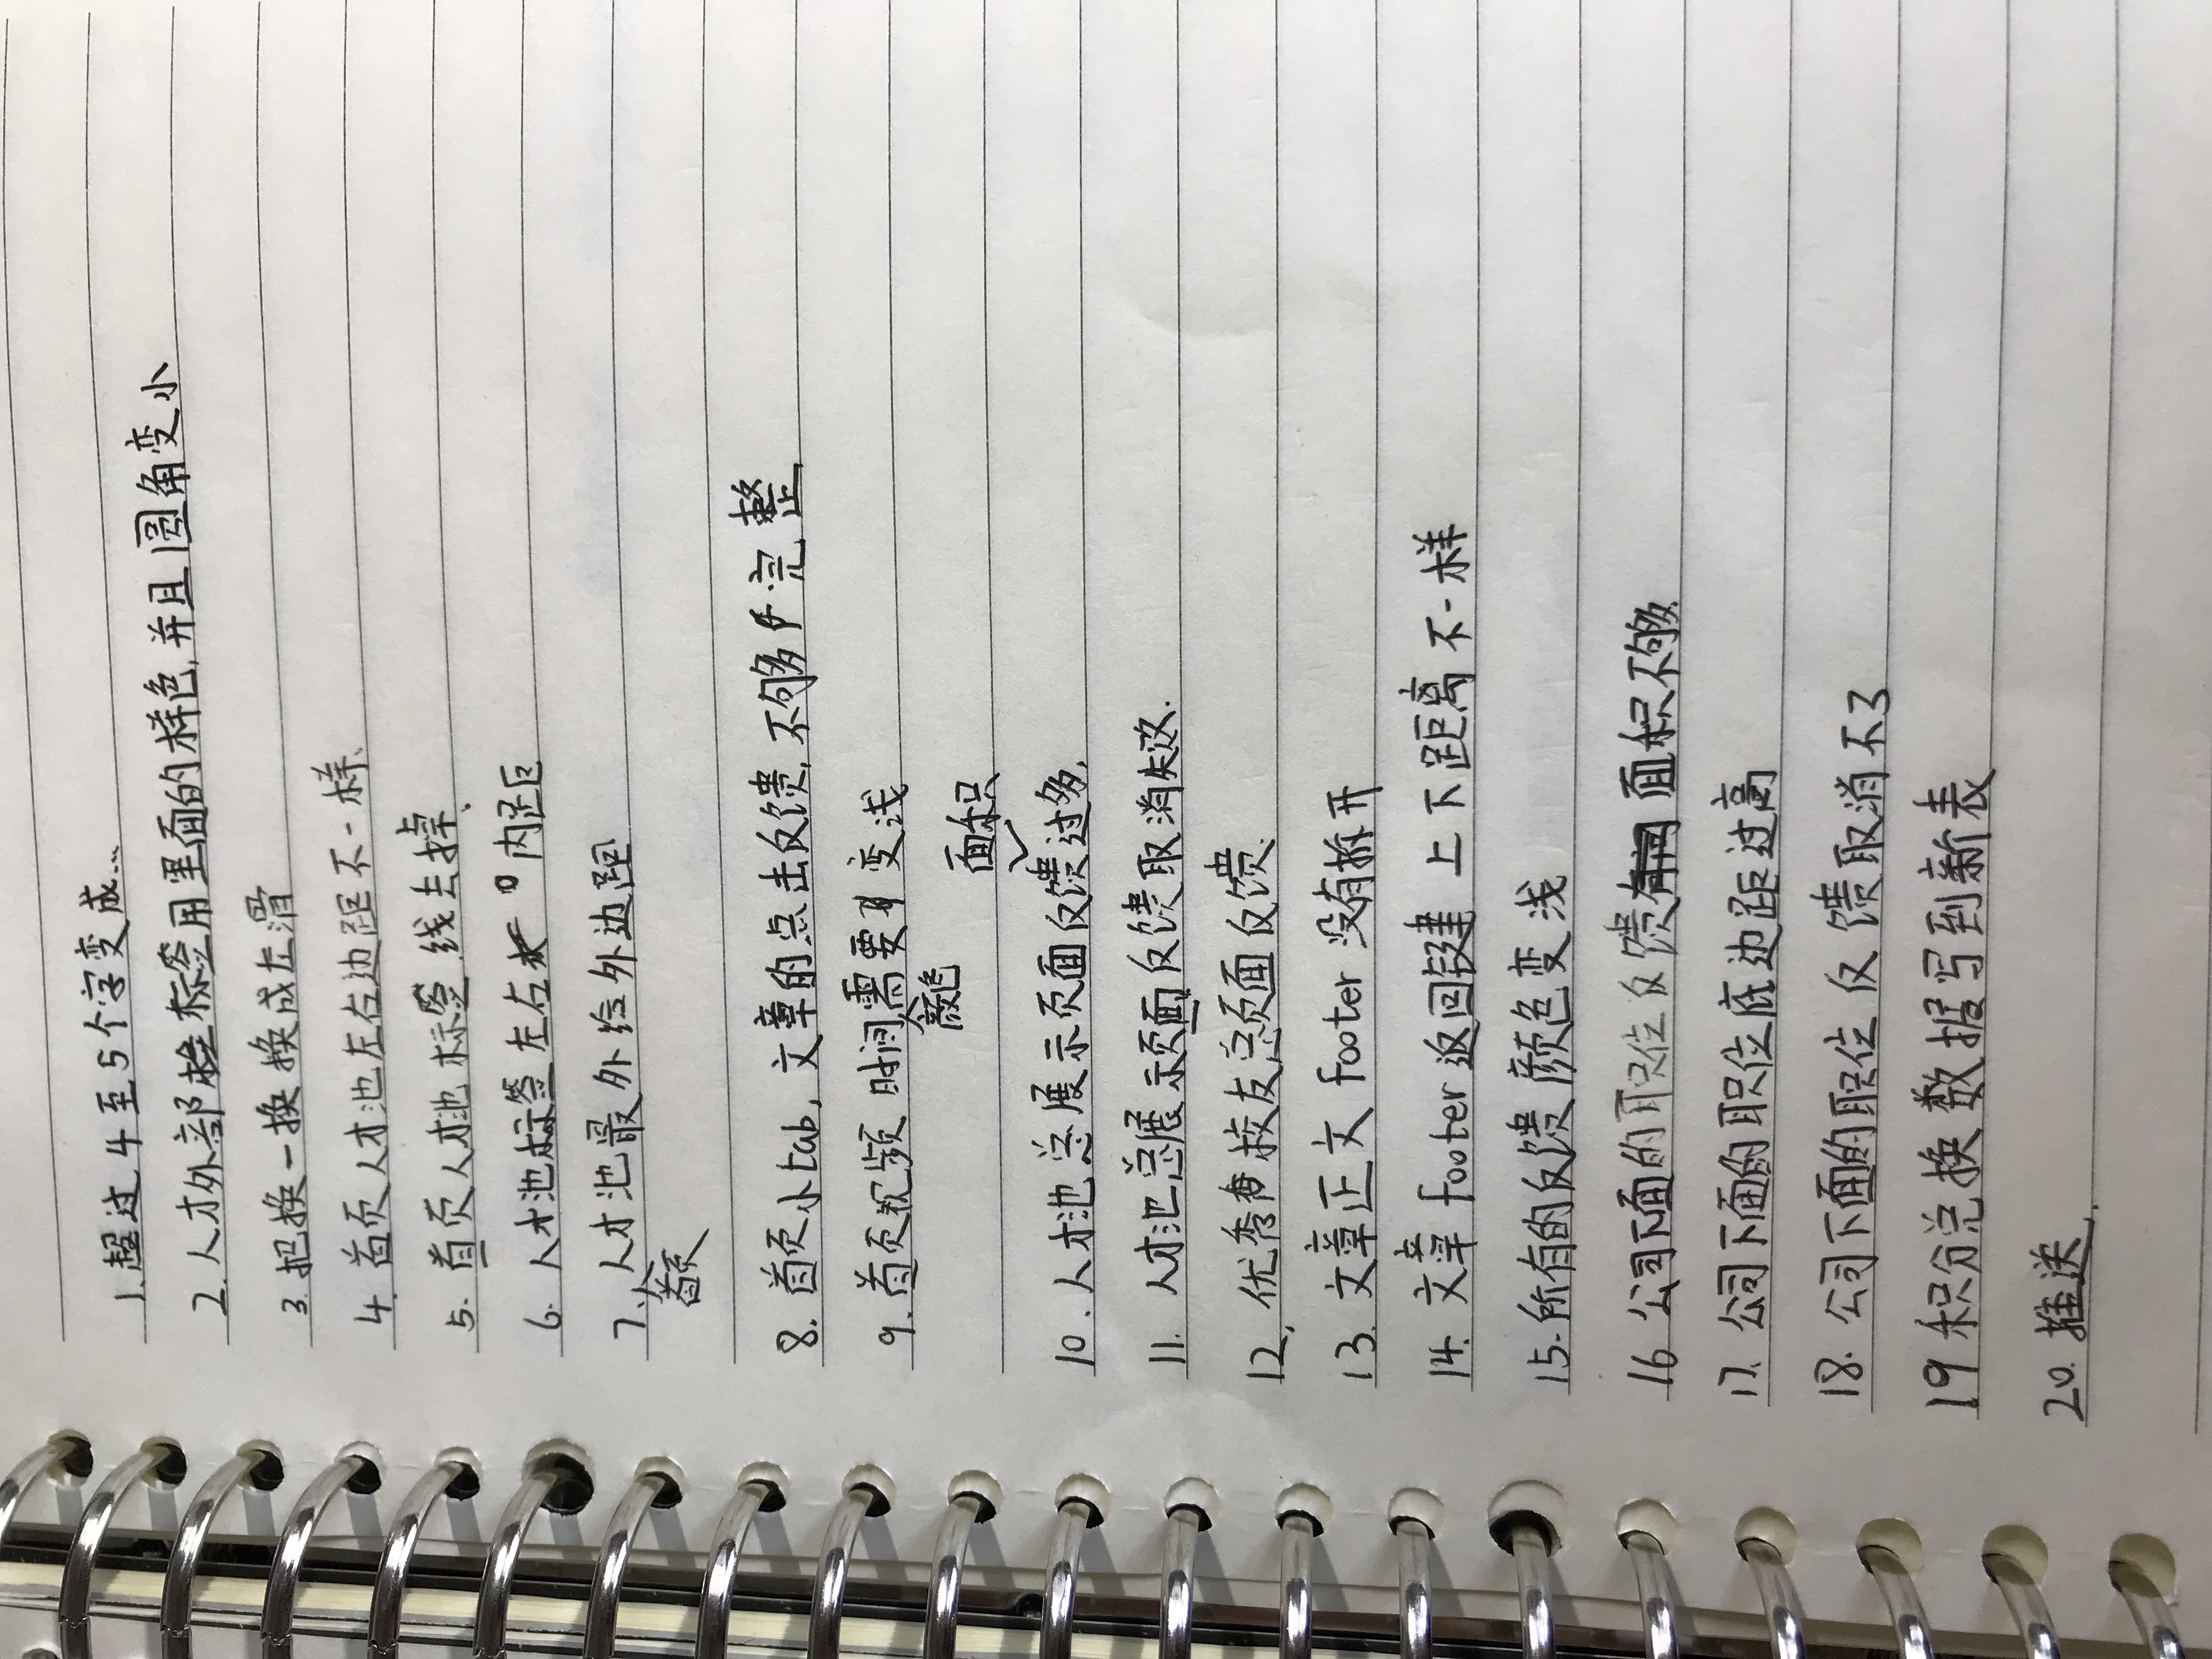 1. 超过4至5个字变成...
2. 人才外部标签用里面的样色,并且圆角变小
3. 把换一换换成左滑
4. 首页人才池左右边距不一样、
5. 首页人才池标签线去掉、
6. 人才池标签左右 0 内距
7. 首页人才池最外给外边距
8. 首页小tab, 文章的点击反馈, 不够完整
9. 首页视频时间颜色需要变浅
10. 人才池总展示页面反馈面积过多,
11. 人才池总展示页面反馈取消失败.
12, 优秀校友总页面反馈.
13. 文章正文 footer 没有拆开
14. 文章 footer 返回键 上下距离不一样
15. 所有的反馈颜色变浅
16 公司下面的职位反馈面积不够
17. 公司下面的职位底边距过高
18. 公司下面的职位反馈取消不了
19 积分兑换数据写到新表
20. 推送.